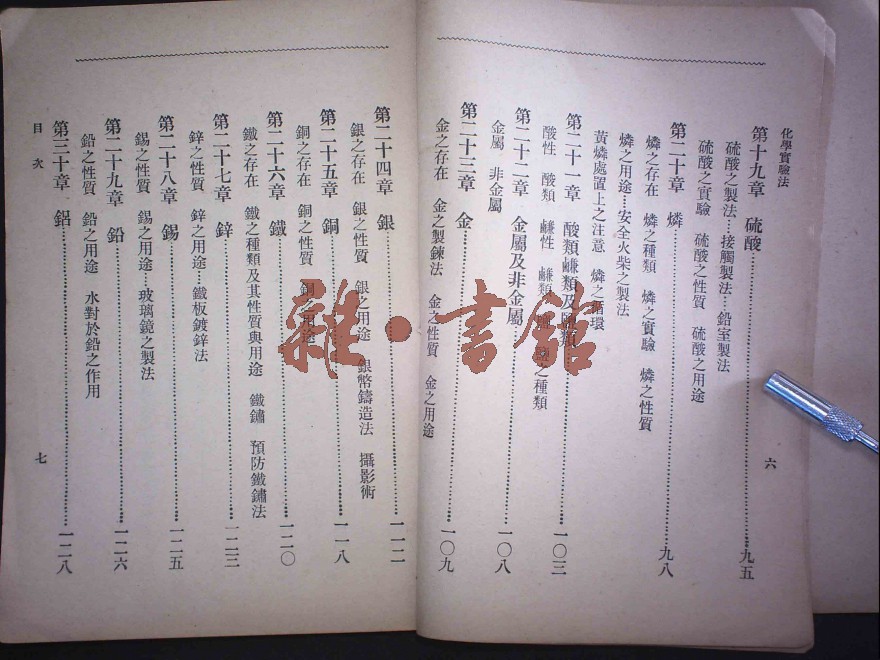 化學實驗法
第十九章 硫酸……九五
硫酸之製法…接觸製法…鉛室製法
硫酸之實驗 硫酸之性質 硫酸之用途
第二十章 燐……九八
燐之存在 燐之種類 燐之實驗 燐之性質
燐之用途…安全火柴之製法
黃燐處置上之注意 燐之循環
第二十一章 酸類鹻類及鹽類……一〇三
酸性 酸類 鹻性 鹻類 鹽之種類
第二十二章 金屬及非金屬……一〇八
金屬 非金屬
第二十三章 金……一〇九
金之存在 金之製鍊法 金之性質 金之用途
六
第二十四章 銀……一一二
銀之存在 銀之性質 銀之用途 銀幣鑄造法 攝影術
第二十五章 銅……一一八
銅之存在 銅之性質 銅之用途
第二十六章 鐵……一二〇
鐵之存在 鐵之種類及其性質與用途 鐵鏽 預防鐵鏽法
第二十七章 鋅……一二三
鋅之性質 鋅之用途…鐵板鍍鋅法
第二十八章 錫……一二五
錫之性質 錫之用途…玻璃鏡之製法
第二十九章 鉛……一二六
鉛之性質 鉛之用途 水對於鉛之作用
第三十章 鋁……一二八
目次
七
雜·書館